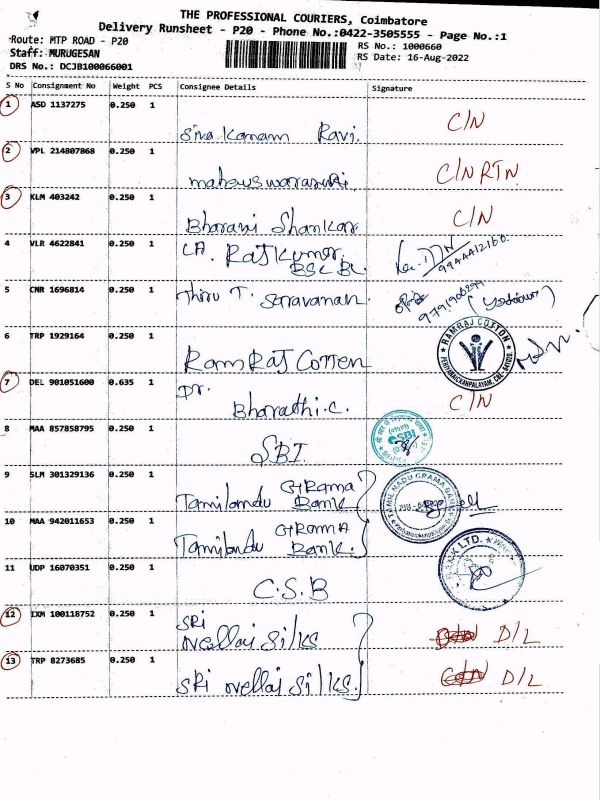 THE PROFESSIONAL COURIERS, Coimbatore
Delivery Runsheet - P20 - Phone No.:0422-3505555 - Page No.:1
Route: MTP ROAD - P20
RS No.: 1000660
Staff: MURUGESAN
RS Date: 16-Aug-2022
DRS No.: DCJB100066001
S No Consignment No Weight PCS Consignee Details Signature
1 ASD 1137275 0.250 1 C/N
Siva Kamam Ravi.
2 VPL 214807868 0.250 1 C/N RTN
3 KLM 403242 0.250 1 C/N
Bharani Shankar
4 VLR 4622841 0.250 1 LA. RAJKumar
BSC BL
5 CNR 1696814 0.250 1 Thiru T. Saravanan.
6 TRP 1929164 0.250 1 RAMRAJ COTTON
RamRaj Cotten
7 DEL 901051600 0.635 1 Dr. C/N
Bharathi.C.
8 MAA 857858795 0.250 1 SBI
SBI.
9 SLM 301329136 0.250 1 Grama TAMIL NADU GRAMA BANK
Tamilandu Bank
10 MAA 942011653 0.250 1 Grama
Tamilandu Bank.
11 UDP 16070351 0.250 1 BANK LTD.
C.S.B
12 IXM 100118752 0.250 1 SRI
Nellai Silks D/L
13 TRP 8273685 0.250 1 SRi Nellai Silks. D/L